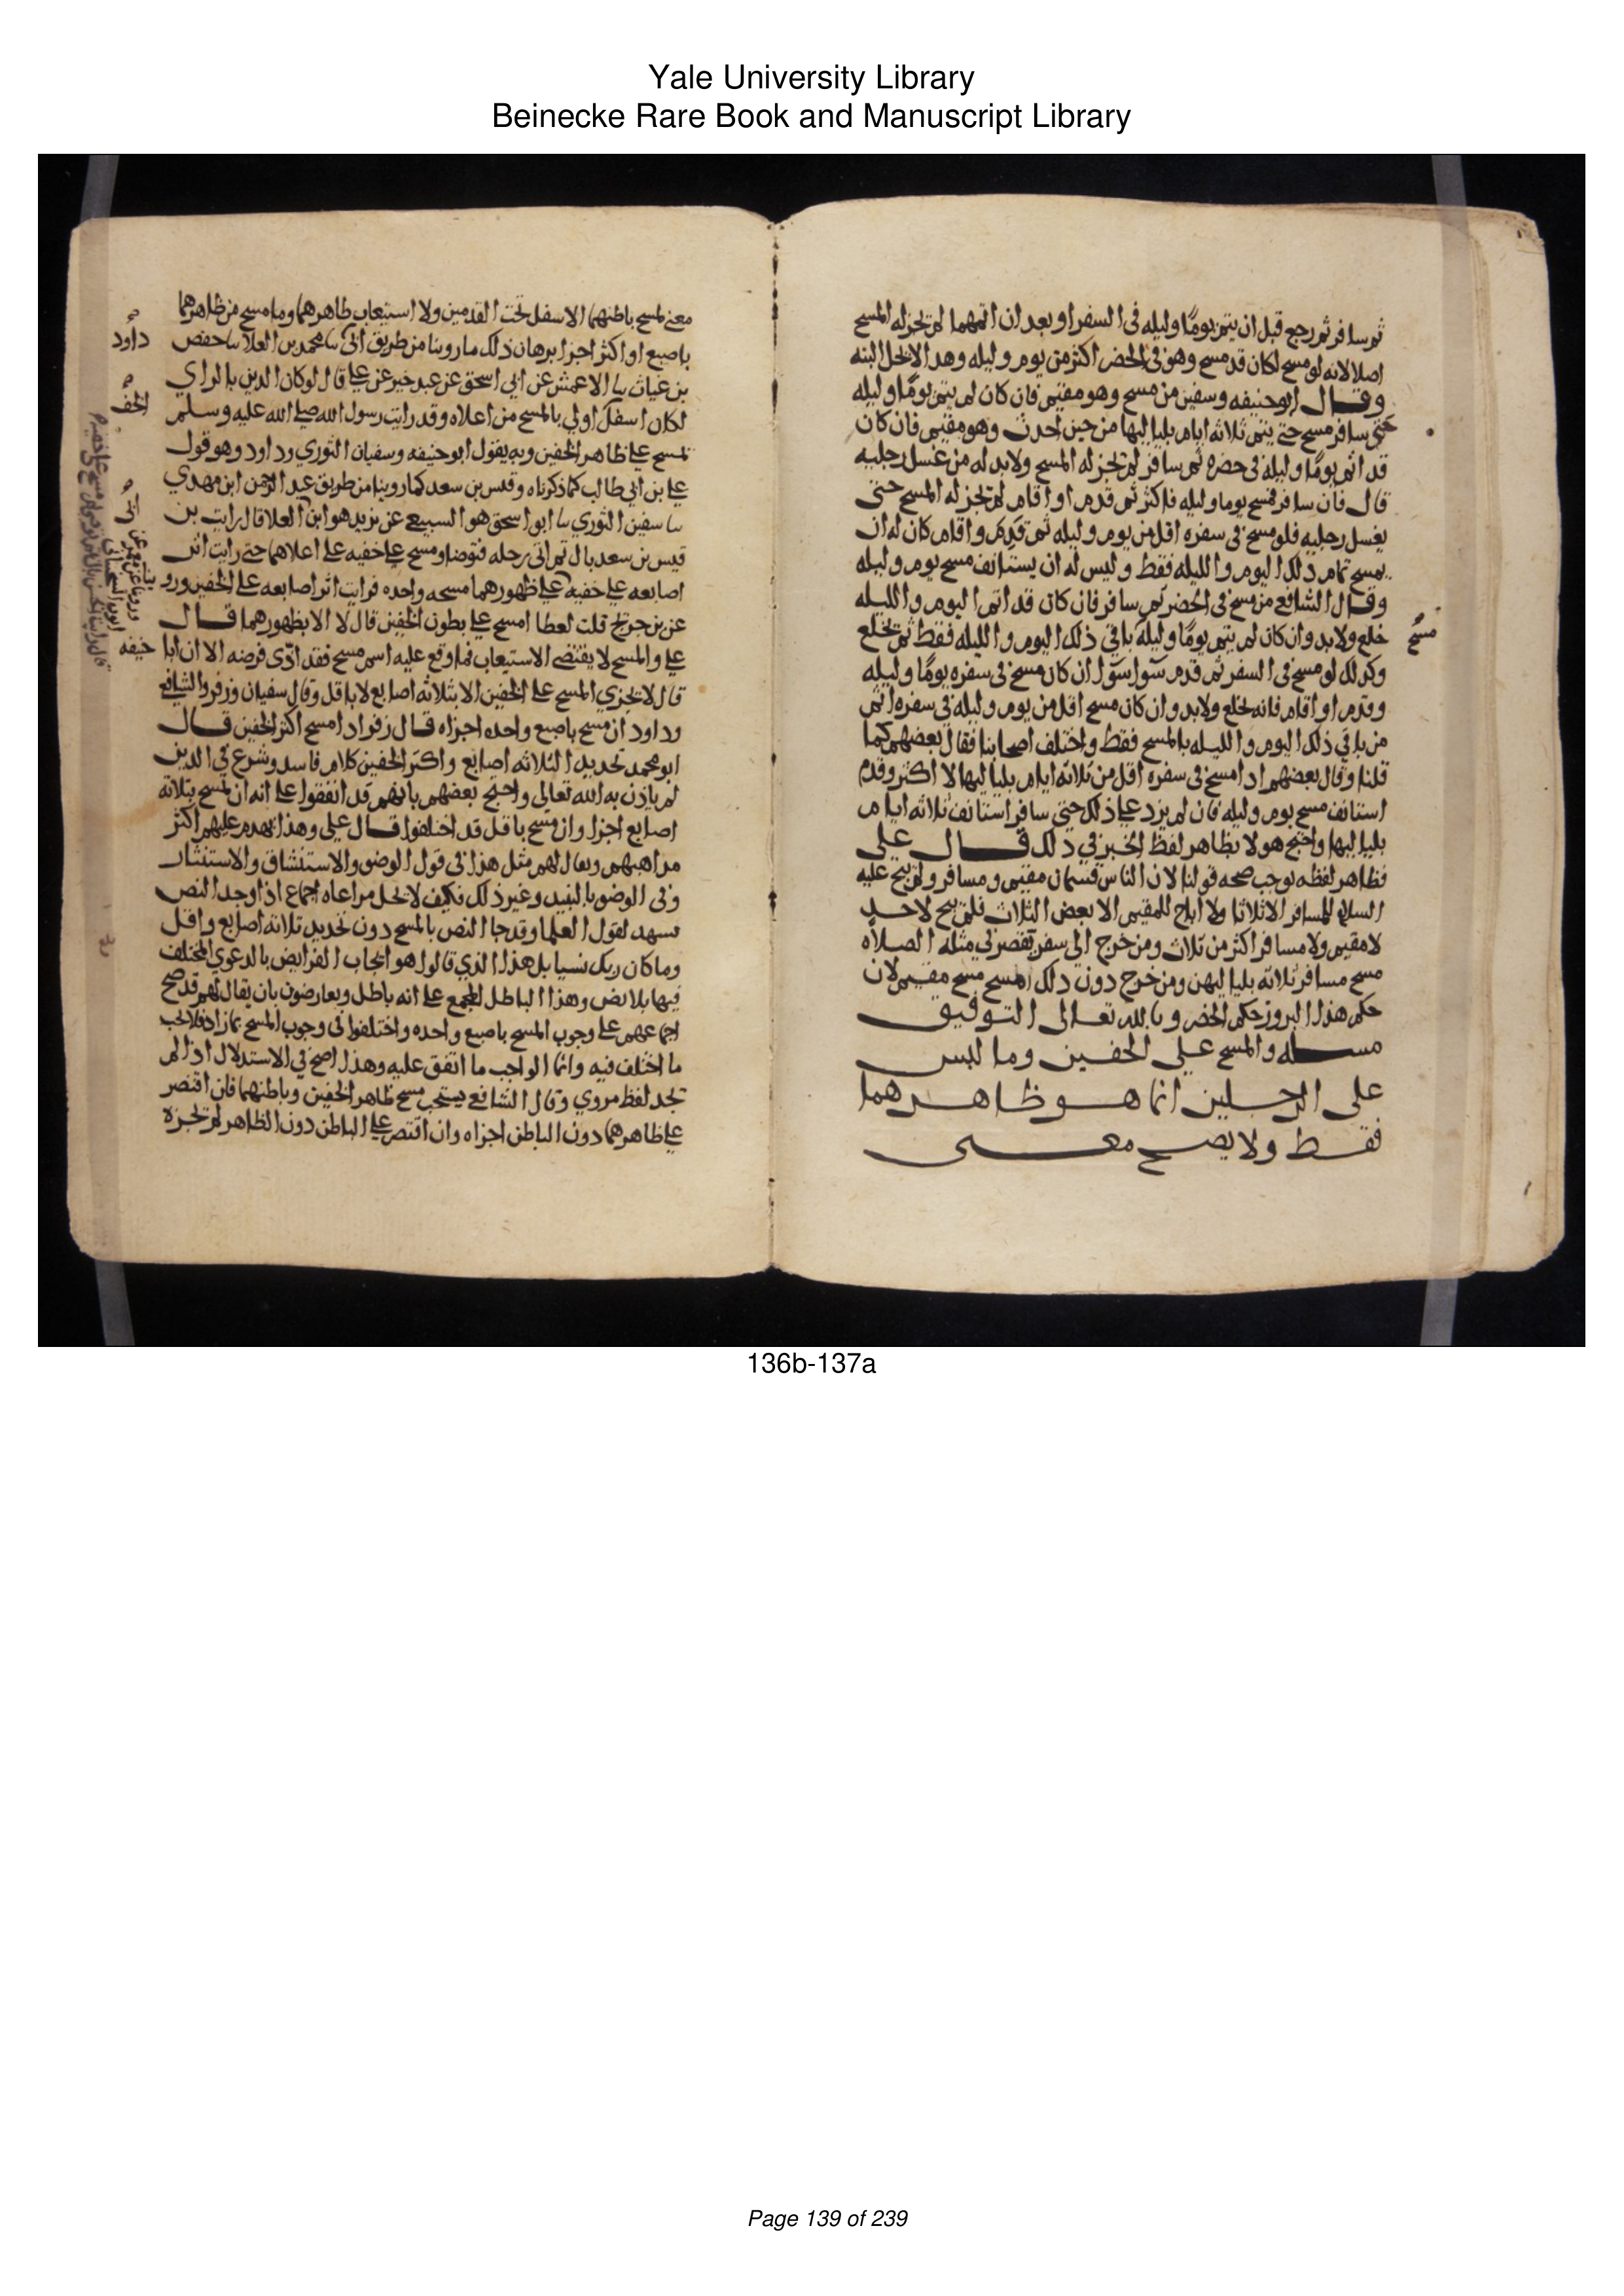 Yale University Library
Beinecke Rare Book and Manuscript Library
ثم سافر ثم رجع قبل ان يتم يومًا وليله في السفر او بعد ان اتمهما لم تجز له المسح
اصلا لانه لو مسح لكان قد مسح وهو في الحضر اكثر من يوم وليله وهدا لا يحل البته
وقال ابو حنيفه وسفين من مسح وهو مقيم فان كان لم يتم يومًا وليله
حتي سافر مسح حتي يتم ثلاثه ايام بلياليها من حين احدث وهو مقيم فان كان
قد اتم يومًا وليله في حضره ثم سافر لم تجز له المسح ولا بد له من غسل رجليه
قال فان سافر فمسح يوما وليله فاكثر ثم قدم او اقام لم تجز له المسح حتي
يغسل رجليه فلو مسح في سفره اقل من يوم وليله ثم قدم واقام كان له ان
يمسح تمام ذلك اليوم والليله فقط وليس له ان يستانف مسح يوم وليله
وقال الشافعي من مسح في الحضر ثم سافر فان كان قد اتم اليوم والليله
خلع ولا بد وان كان لم يتم يومًا وليلة باقي ذلك اليوم والليله فقط ثم يخلع
مسح
وكذلك لو مسح في السفر ثم قدم سوا سوا ان كان مسح في سفره يومًا وليله
وقدم او اقام فانه يخلع ولا بد وان كان مسح اقل من يوم وليله في سفره اتم
من باقي ذلك اليوم والليله بالمسح فقط واختلف اصحابنا فقال بعضهم كما
قلنا وقال بعضهم ادا مسح في سفره اقل من ثلاثة ايام بلياليها لا اكثر وقدم
استانف مسح يوم وليله فان لم يزد علي ذلك حتي سافر استانف ثلاثه ايام
بلياليها واحتج هولا بظاهر لفظ الخبر في دلك قال علي
فظاهر لفظه يوجب صحه قولنا لان الناس قسمان مقيم ومسافر ولم يبح عليه
السلام للمسافر الا ثلاثا ولا اباح للمقيم الا بعض الثلاث فلم يبح لاحد
لا مقيم ولا مسافر اكثر من ثلاث ومن خرج الي سفر تقصر في مثله الصلاه
مسح مسافر ثلاثه بلياليهن ومن خرج دون دلك المسح مسح مقيم لان
حكم هذا البروز حكم الحضر وبالله تعالى التوفيق
مسله والمسح على الخفين وما لبس
على الرجلين انما هو ظاهرهما
فقط ولا يصح معنى
معني لمسح باطنهما الاسفل تحت القدمين ولا استيعاب ظاهرهما وما مسح من ظاهرهما
باصبع او اكثر اجزا برهان ذلك ما روينا من طريق ابي نا محمد بن العلا نا حفص
داود
بن غياث نا الاعمش عن ابي اسحق عن عبد خير عن علي قال لو كان الدين بالراي
لكان اسفل اولي بالمسح من اعلاه وقد رايت رسول الله صلي الله عليه وسلم
الخف
يمسح علي ظاهر الخفين وبه يقول ابو حنيفه وسفيان الثوري وداود وهو قول
علي بن ابي طالب كما ذكرناه وقيس بن سعد كما روينا من طريق عبد الرحمن ابن مهدي
نا سفين الثوري نا ابو اسحق هو السبيعي عن يزيد هو ابن العلا قال رايت بن
قيس بن سعد بال ثم اتي رحله فتوضا ومسح علي خفيه علي اعلاهما حتي رايت اثر
اصابعه علي خفيه علي ظهورهما مسحه واحده فرايت اثر اصابعه علي الخفين ورو
عن بن جريج قلت لعطا امسح علي بطون الخفين قال لا الا بظهورهما قال
علي والمسح لا يقتضي الاستيعاب فما وقع عليه اسم مسح فقد ادّى فرضه الا ان ابا
حنيفه
قال لا يجزي المسح علي الخفين الا بثلاثه اصابع لا باقل وقال سفيان وزفر والشافعي
وداود ان مسح باصبع واحده اجزاه قال زفر ادا مسح اكثر الخفين قال
ابو محمد تحديد الثلاثه اصابع واكثر الخفين كلام فاسد وشرع في الدين
لم ياذن به الله تعالي واحتج بعضهم بانهم قد اتفقوا علي انه ان مسح بثلاثة
اصابع اجزا وان مسح باقل قد اختلفوا قال علي وهذا يهدم عليهم اكثر
مداهبهم ويقال لهم مثل هذا في قول الوضو والاستنشاق والاستنثار
وفي الوضو بالنبيد وغير ذلك فكيف لا يحل مراعاه اجماع اذا وجد النص
يشهد لقول العلما وقد جا النص بالمسح دون تحديد ثلاثة اصابع واقل
وما كان ربك نسيا بل هذا الذي قالوا هو ايجاب الفرايض بالدعوي المختلف
فيها بلا نص وهذا الباطل المجمع علي انه باطل ويعارضون بان يقال لهم قد صح
اجماعهم علي وجوب المسح باصبع واحده واختلفوا في وجوب المسح بما زاد فلا يجب
ما اختلف فيه وانما الواجب ما اتفق عليه وهذا اصح في الاستدلال اذا لم
تجد لفظ مروي وقال الشافعي يستحب مسح ظاهر الخفين وباطنهما فان اقتصر
علي ظاهرهما دون الباطن اجزاه وان اقتصر علي الباطن دون الظاهر لم تجزه
136b-137a
Page 139 of 239